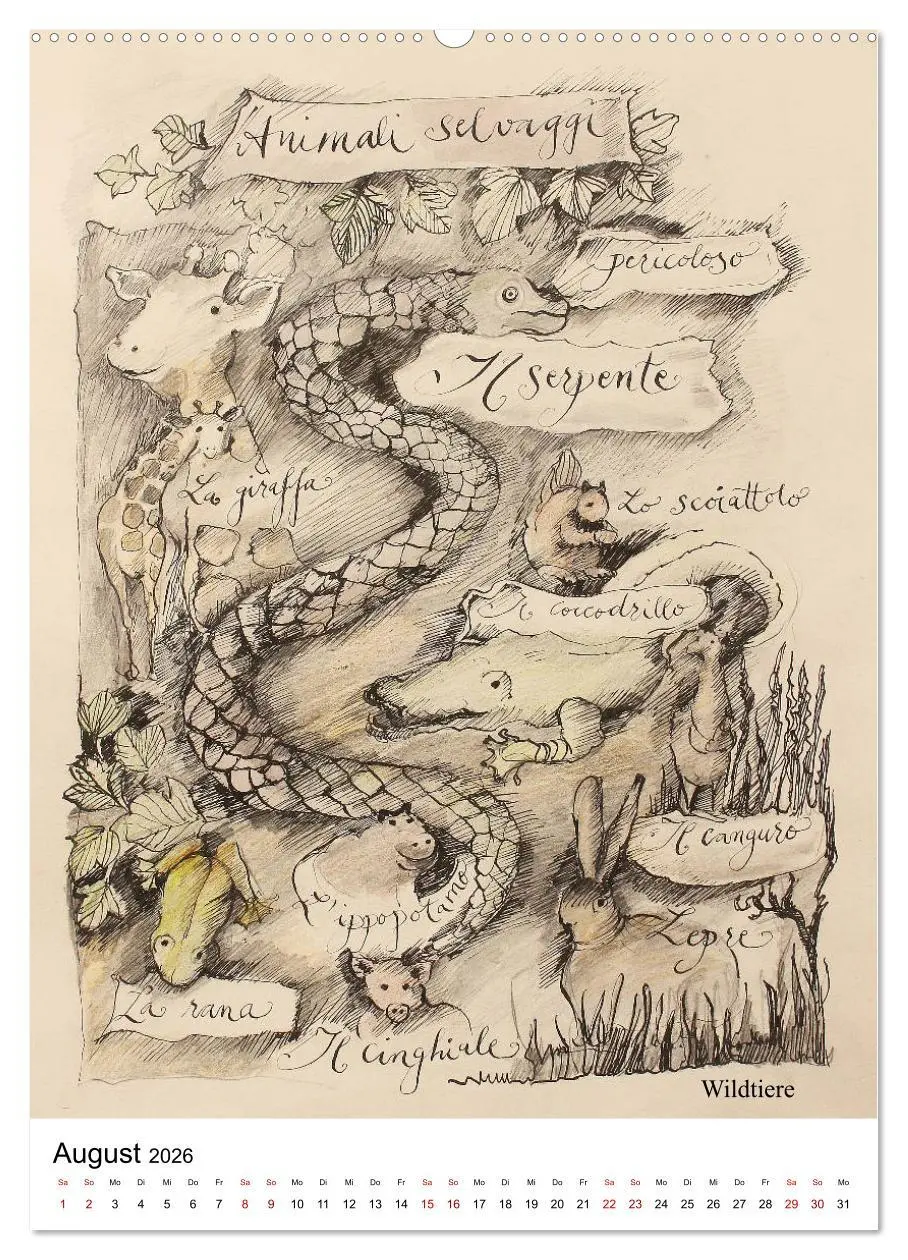 Animali selvaggi
pericoloso
Il serpente
La giraffa
Lo scoiattolo
Il coccodrillo
Il canguro
L'ippopotamo
Lepre
La rana
Il cinghiale
Wildtiere
August 2026
Sa So Mo Di Mi Do Fr Sa So Mo Di Mi Do Fr Sa So Mo Di Mi Do Fr Sa So Mo Di Mi Do Fr Sa So Mo
1 2 3 4 5 6 7 8 9 10 11 12 13 14 15 16 17 18 19 20 21 22 23 24 25 26 27 28 29 30 31